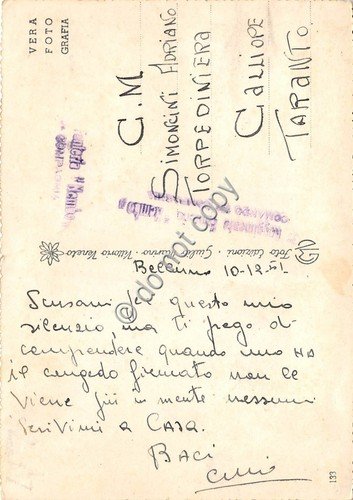 VERA
FOTO
GRAFIA
C. M.
SIMONCINI ADRIANO
TORPEDINIERA
CALLIOPE
TARANTO.
Foto Edizioni - Giulio Marino - Vittorio Veneto
Belluno 10-12-51
Scusami di questo mio
silenzio, ma ti prego di
comprendere quando uno HA
il congedo firmato non ce
viene più in mente nessuno
Scrivimi a CASA.
BACI
133
do not copy